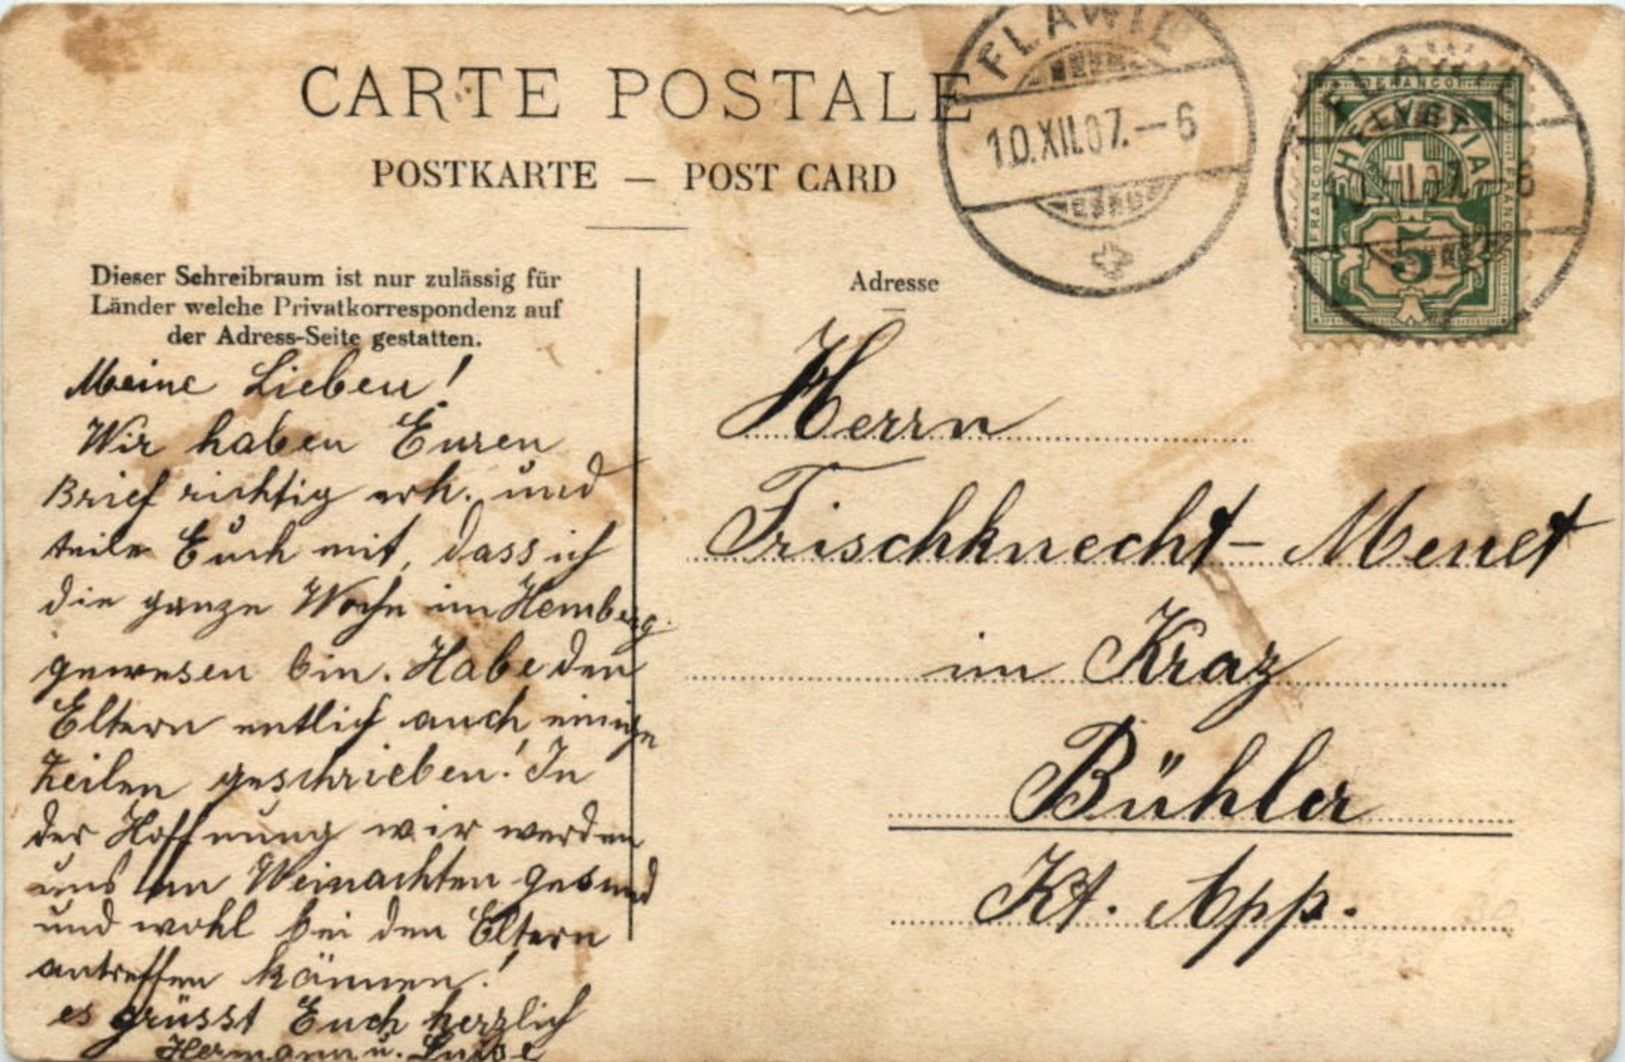 CARTE POSTALE
POSTKARTE — POST CARD
FLAWIL
10.XII.07.—6
FRANCO
HELVETIA
FRANCO
FRANCO
5
Dieser Schreibraum ist nur zulässig für
Länder welche Privatkorrespondenz auf
der Adress-Seite gestatten.
Meine Lieben!
Wir haben Euren
Brief richtig erh. und
teile Euch mit, dass ich
die ganze Woche im Hemberg
gewesen bin. Habe den
Eltern entlich auch einige
Zeilen geschrieben! In
der Hoffnung wir werden
uns an Weinachten gesund
und wohl bei den Eltern
antreffen können!
es grüsst Euch herzlich
Hermann u. Luise
Adresse
Herrn
Frischknecht-Menet
im Kraz
Bühler
Kt. App.